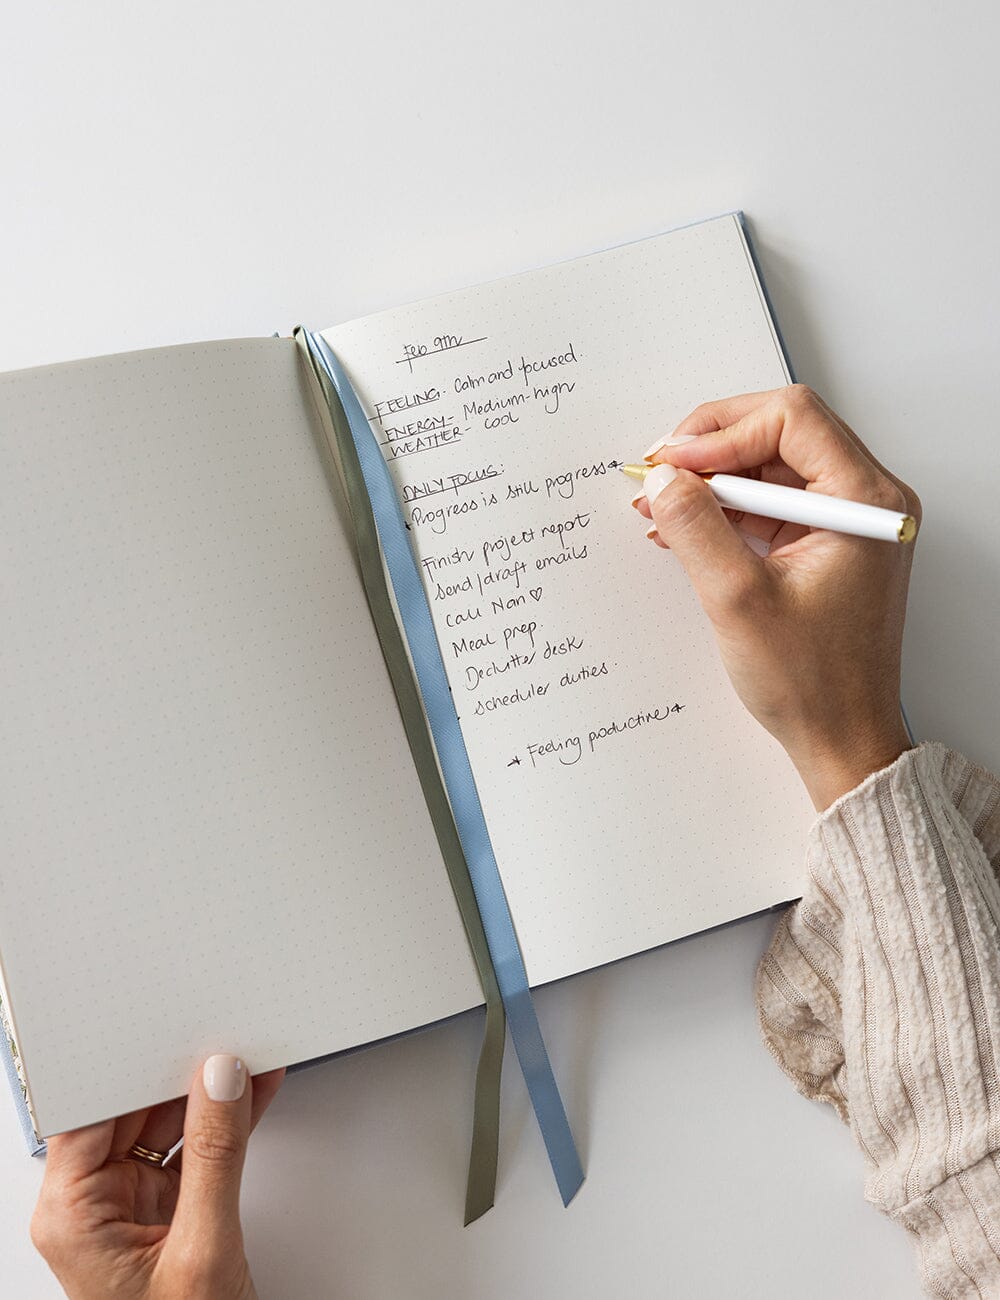 Feb 9th
FEELING- Calm and focused.
ENERGY- Medium-high
WEATHER- cool
DAILY FOCUS:
Progress is still progress
Finish project report
Send/draft emails
Call Nan ♡
Meal prep.
Declutter desk
scheduler duties.
Feeling productive